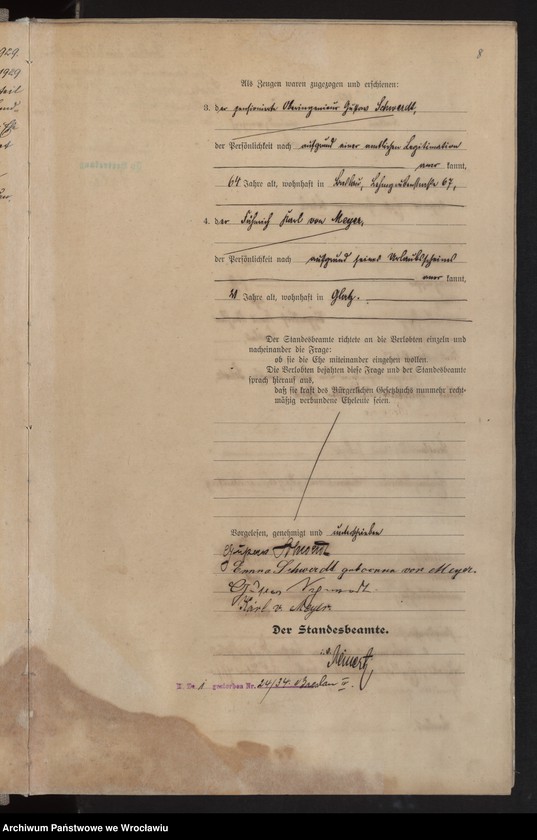 1929.
1929
8
Als Zeugen waren zugezogen und erschienen:
3. der pensionierte Oberingenieur Gustav Schwerdt,
der Persönlichkeit nach aufgrund einer amtlichen Legitimation
aner kannt,
64 Jahre alt, wohnhaft in Breslau, Lehmgrubenstraße 67,
4. der Fähnrich Karl von Meyer,
der Persönlichkeit nach aufgrund seines Urlaubsscheines
aner kannt,
21 Jahre alt, wohnhaft in Glatz.
Der Standesbeamte richtete an die Verlobten einzeln und
nacheinander die Frage:
ob sie die Ehe miteinander eingehen wollen.
Die Verlobten bejahten diese Frage und der Standesbeamte
sprach hierauf aus,
daß sie kraft des Bürgerlichen Gesetzbuchs nunmehr recht-
mäßig verbundene Eheleute seien.
Vorgelesen, genehmigt und unterschrieben
Gustav Schwerdt
Schwerdt geborene von Meyer.
Gustav Schwerdt.
Karl v. Meyer
Der Standesbeamte.
gestorben Nr. 24/34 Breslau
Archiwum Państwowe we Wrocławiu